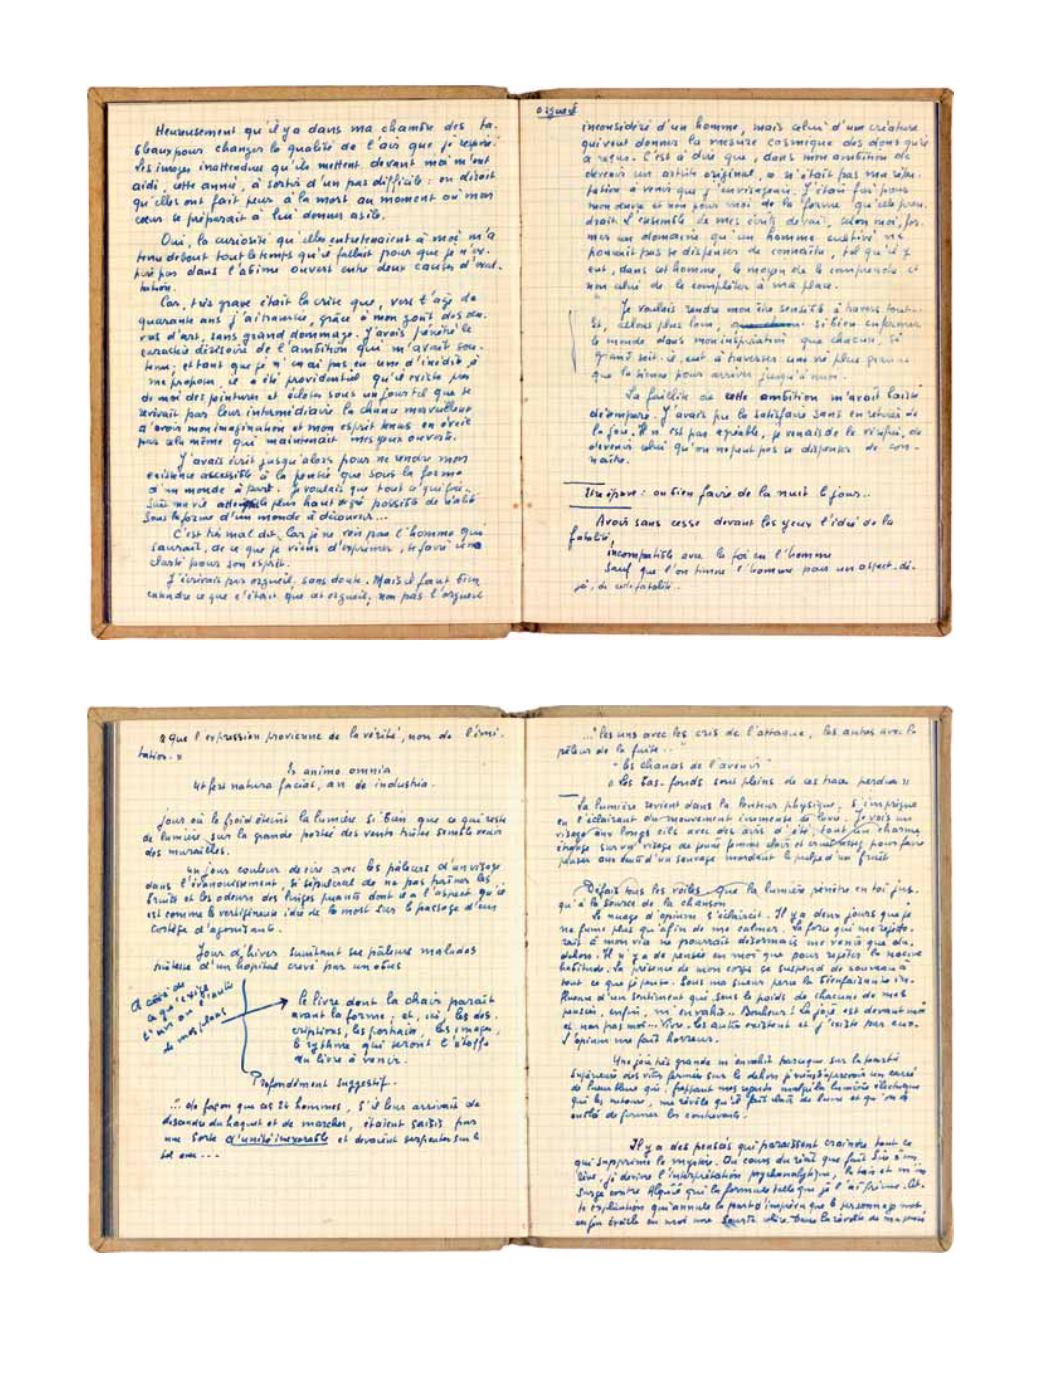 Heureusement qu'il y a dans ma chambre des ta-
bleaux pour changer la qualité de l'air que je respire.
Les images inattendues qu'ils mettent devant moi m'ont
aidé, cette année, à sortir d'un pas difficile : on dirait
qu'elles ont fait peur à la mort au moment où mon
cœur se préparait à lui donner asile.
Oui, la curiosité qu'elles entretenaient à moi m'a
tenu debout tout le temps qu'il fallait pour que je n'ex-
pire pas dans l'abîme ouvert entre deux causes d'exal-
tation.
Car, très grave était la crise que, vers l'âge de
quarante ans j'ai traversée, grâce à mon goût des œu-
vres d'art, sans grand dommage. J'avais pénétré le
caractère dérisoire de l'ambition qui m'avait sou-
tenu; et tant que je n'en ai pas eu une d'inédite à
me proposer, il a été providentiel qu'il existe près
de moi des peintures et écloses sous un jour tel que se
servait par leur intermédiaire la chance merveilleuse
d'avoir mon imagination et mon esprit tenus en éveil
par cela même qui maintenait mes yeux ouverts.
J'avais écrit jusqu'alors pour ne rendre mon
existence accessible à la pensée que sous la forme
d'un monde à part. Je voulais que tout ce qui
dans ma vie le plus haut degré possible de réalité
sous la forme d'un monde à découvrir...
C'est très mal dit. Car je ne vois pas l'homme qui
saurait, de ce que je viens d'exprimer, se faire une
clarté pour son esprit.
J'écrivais par orgueil, sans doute. Mais il faut bien
entendre ce que c'était que cet orgueil; non pas l'orgueil
orgueil
inconsidéré d'un homme, mais celui d'une créature
qui veut donner la mesure cosmique des dons qu'elle
a reçus. C'est à dire que, dans mon ambition de
devenir un artiste original, ce n'était pas ma répu-
tation à venir que j'envisageais. J'étais fier pour
mon œuvre et non pour moi de la forme qu'elle pren-
drait. L'ensemble de mes écrits devait, selon moi, for-
mer un domaine qu'un homme cultivé ne
pouvait pas se dispenser de connaître, tel qu'il y
eut, dans cet homme, le moyen de le comprendre et
non celui de le compléter à ma place.
Je voulais rendre mon être sensible à travers tout.
Et, allons plus loin, si bien enfermer
le monde dans mon inspiration que chacun, si
grand soit-il, eut à traverser une vie plus grande
que la sienne pour arriver jusqu'à
La faillite de cette ambition m'avait laissé
désemparé. J'avais pu la satisfaire sans en retirer de
la joie. Il n'est pas agréable, je venais de le vérifier, de
devenir celui qu'on ne peut pas se dispenser de con-
naître.
Etre épave : ou bien faire de la nuit le jour..
Avoir sans cesse devant les yeux l'idée de la
fatalité,
incompatible avec la foi en l'homme
Sauf que l'on tienne l'homme pour un aspect, dé-
jà, de cette fatalité..
« Que l'expression provienne de la vérité, non de l'imi-
tation. »
Ex animo omnia
Ut fert natura facias, an de industria.
Jour où le froid éteint la lumière si bien que ce qui reste
de lumière sur la grande portée des vents traîne semble venir
des murailles.
un jour couleur de cire avec les pâleurs d'un visage
dans l'évanouissement, si sépulcral de ne pas traîner les
bruits et les odeurs des linges puants dont il a l'aspect qu'il
est comme la vertigineuse idée de la mort sur le passage d'un
cortège d'agonisants.
Jour d'hiver suintant ses pâleurs malades
tristesse d'un hôpital crevé par un obus
A côté de
ce qu'exige
l'un ou l'autre
de mes plans
le livre dont la chair paraît
avant la forme; et, ici, les des-
criptions, les portraits, les images,
le rythme qui seront l'étoffe
du livre à venir.
Profondément suggestif.
... de façon que ces 24 hommes, s'il leur arrivait de
descendre du baquet et de marcher, étaient saisis par
une sorte d'unité inexorable et devaient serpenter sur le
sol avec ...
..." les uns avec les cris de l'attaque, les autres avec la
pâleur de la fuite ..."
" les chances de l'avenir "
« les bas-fonds sont pleins de ces traces perdues »
La lumière revient dans la lenteur physique, s'imprègne
en l'éclairant du mouvement immense de vivre. Je vois un
visage aux longs cils avec des airs d'été, tout un charme
étrange sur un visage de jeune femme clair et pour faire
penser aux dents d'un sauvage mordant la pulpe d'un fruit
Défais tous les voiles. Que la lumière pénètre en toi jus-
qu'à la source de la chanson
Le nuage d'opium s'éclaircit. Il y a deux jours que je
ne fume plus qu'afin de me calmer. La force qui me rejette-
rait à mon vice ne pourrait désormais me venir que du
dehors. Il n'y a de pensée en moi que pour rejeter la nocive
habitude. La présence de mon corps se suspend de nouveau à
tout ce que je pense. Sous ma sueur perce la bienfaisante in-
fluence d'un sentiment qui sous le poids de chacune de mes
pensées, enfin, m'envahit.. Bonheur ! La joie est devant moi
et non pas moi... Vivre. Les autres existent et j'existe par eux.
L'opium me fait horreur.
Une joie très grande m'envahit parce que, sur la partie
supérieure des vitres fermées sur le dehors, je viens d'apercevoir un carré
de lueur bleue qui, frappant mes regards malgré la lumière électrique
qui les entoure, me révèle qu'il fait clair de lune et qu'on a
oublié de fermer les contrevents.
Il y a des pensées qui paraissent craindre tout ce
qui supprime le mystère. Au cours du récit que fait d'un
rêve, je devine l'interprétation psychanalytique, la tais et m'in-
surge contre Alquié qui la formule telle que je l'ai Cet-
te explication qui annule la part d'imprévu que le personnage
enfin éveille en moi une sourde colère. Dans la révolte de ma